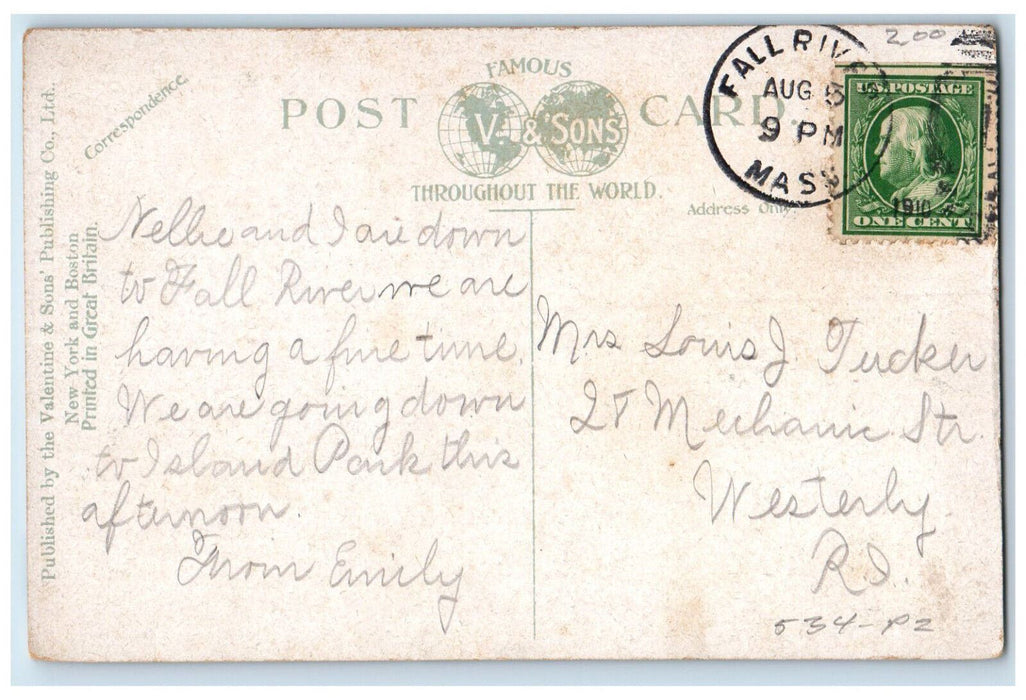 Published by the Valentine & Sons' Publishing Co., Ltd.
New York and Boston
Printed in Great Britain.
Correspondence.
FAMOUS
POST CARD.
V. & SONS
THROUGHOUT THE WORLD.
Address Only.
FALL RIVER
AUG 5
9 PM
MASS
1910
200
U.S. POSTAGE
ONE CENT
Nellie and I are down
to Fall River we are
having a fine time.
We are going down
to Island Park this
afternoon.
From Emily
Mrs Louis J Tucker
Mechanic Str.
Westerly
R.I.
534-P2